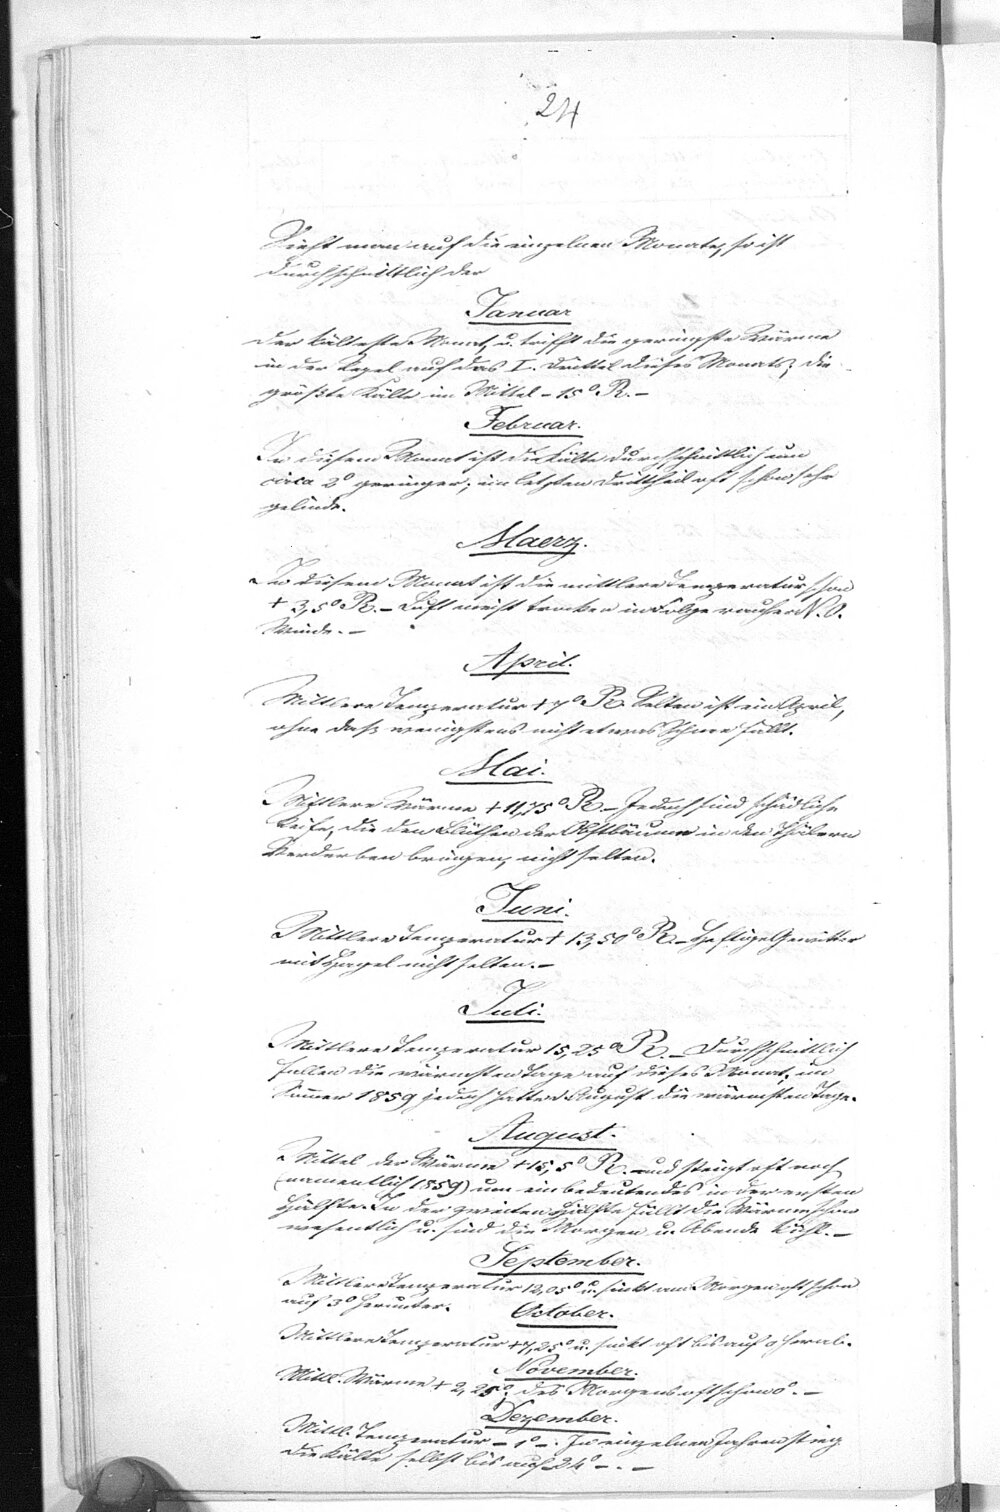 24
Sieht man auf die einzelnen Monate, so ist
durchschnittlich der
Januar
der kälteste Monat, u. trifft die geringste Wärme
in der Regel auf das I. Drittel dieses Monats; die
größte Kälte im Mittel - 15° R. -
Februar.
In diesem Monat ist die Kälte durchschnittlich um
circa 2° geringer; im letzten Drittheil oft schon sehr
gelinde.
Maerz.
In diesem Monat ist die mittlere Temperatur schon
+ 3,5° R. - Luft meist trocken in Folge rauher N. O.
Winde. -
April.
Mittlere Temperatur + 7° R. Selten ist ein April,
ohne daß wenigstens nicht etwas Schnee fällt.
Mai.
Mittlere Wärme + 11,75° R. - Jedoch sind schädliche
Reife, die den Blüthen der Obstbäume in den Thälern
Verderben bringen, nicht selten.
Juni.
Mittlere Temperatur + 13,50° R. - Heftige Gewitter
mit Hagel nicht selten. -
Juli.
Mittlere Temperatur 15,25° R. - Durchschnittlich
fallen die wärmsten Tage auf dieses Monat, im
Sommer 1859 jedoch hatte August die wärmsten Tage.
August.
Mittel der Wärme + 15,5° R. und steigt oft noch
(namentlich 1859) um ein bedeutendes in der ersten
Hälfte. In der zweiten Hälfte fällt die Wärme schon
wesentlich u. sind die Morgen u. Abende kühl. -
September.
Mittlere Temperatur 12,05° u. sinkt am Morgen oft schon
auf 3° herunter.
October.
Mittlere Temperatur + 7,25° u. sinkt oft bis auf 0 herab.
November.
Mittl. Wärme + 2,25°, des Morgens oft schon 0°. -
Dezember.
Mittl. Temperatur - 1° -. In einzelnen Jahren stieg
die Kälte selbst bis auf 24° -. -